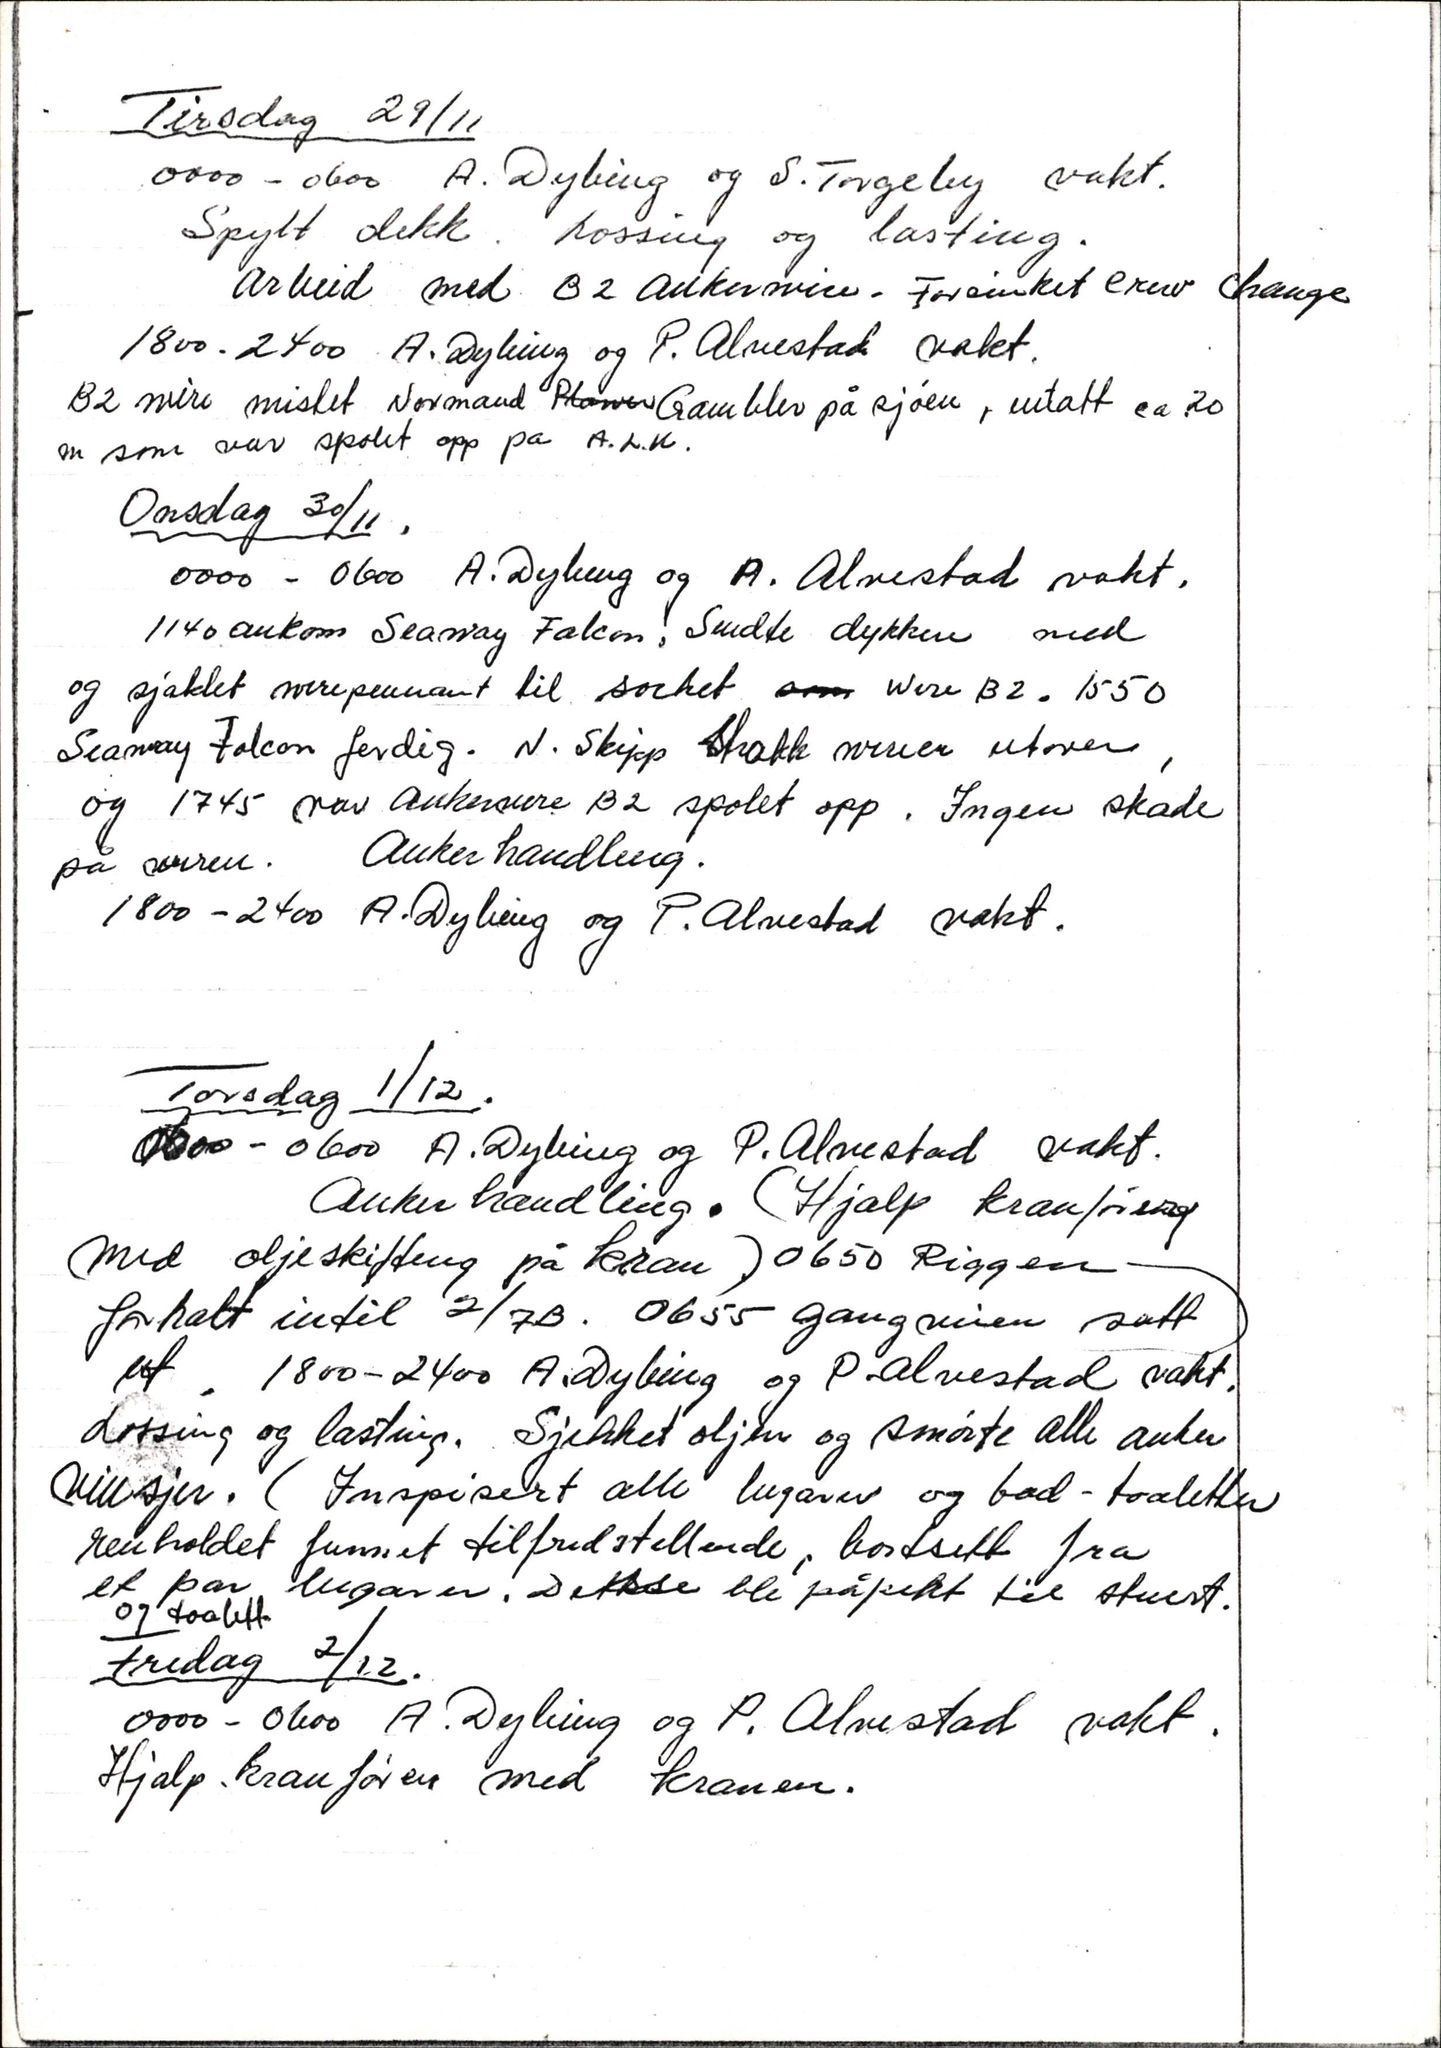 Tirsdag 29/11
0000 - 0600 A. Dybing og S. Torgeby vakt.
Spylt dekk. Lossing og lasting.
Arbeid med B2 Ankerwire - Forsinket crew change
1800 - 2400 A. Dybing og P. Alvestad vakt.
B2 wire mistet Normand Gambler på sjøen, untatt ca 20
m som var spolet opp på A.L.K.
Onsdag 30/11.
0000 - 0600 A. Dybing og A. Alvestad vakt.
1140 ankom Seaway Falcon, Sendte dykker ned
og sjaklet wirepennant til socket som wire B2. 1550
Seaway Falcon ferdig. N. Skipp trakk wiren utover,
og 1745 var Ankerwire B2 spolet opp. Ingen skade
på wiren. Anker handling.
1800 - 2400 A. Dybing og P. Alvestad vakt.
Torsdag 1/12.
0000 - 0600 A. Dybing og P. Alvestad vakt.
Anker handling. (Hjalp kranfører
med oljeskifting på kran) 0650 Riggen
forhalt intil 2/7B. 0655 gangveien satt
ut. 1800 - 2400 A. Dybing og P. Alvestad vakt.
Lossing og lasting. Sjekket oljen og smørte alle anker
vinsjer. (Inspisert alle lugarer og bad - toaletter
renholdet funnet tilfredstellende, bortsett fra
et par lugarer. Dette ble påpekt til stuert.
og toalett
Fredag 2/12.
0000 - 0600 A. Dybing og P. Alvestad vakt.
Hjalp kranfører med kranen.